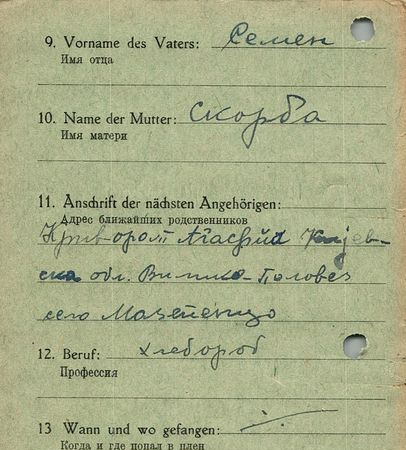 9. Vorname des Vaters: Семен
Имя отца
10. Name der Mutter: Скорба
Имя матери
11. Anschrift der nächsten Angehörigen:
Адрес ближайших родственников
Криворот
ска обл. Половец
село
12. Beruf: хлебороб
Профессия
13 Wann und wo gefangen:
Когда и где попал в плен